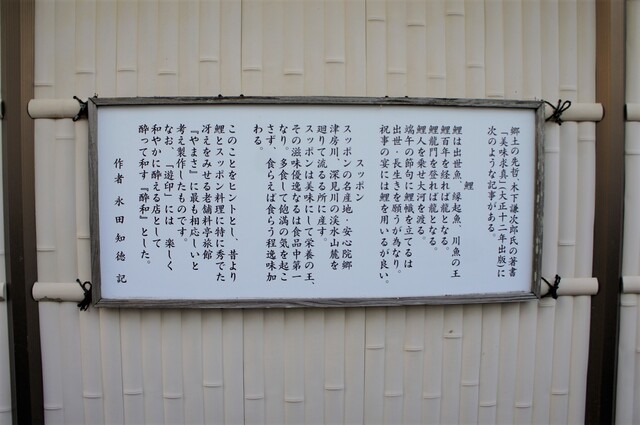 郷土の先哲、木下謙次郎氏の著書
『美味求真』(大正十二年出版)に
次のような記事がある。
鯉
鯉は出世魚、縁起魚、川魚の王
鯉百年を経れば龍となる。
鯉龍門を登れば龍となる。
鯉人を乗せ大河を渡る。
端午の節句に鯉幟を立てるは
出世・長生きを願うが為なり。
祝事の宴には鯉を用いるが良い。
スッポン
スッポンの名産地・安心院郷
津房川、深見川の渓水山麓を
廻りて流るる所に産す。
スッポンは美味にして栄養の王、
その滋味優逸なるは食品中第一
なり。多食して飽満の気を起こ
さず、食らえば食らう程逸味加
わる。
このことをヒントとし、昔より
鯉とスッポン料理に特に秀でた
冴えをみせる老舗料亭旅館
『やまさ』に最も相応しいと
考え製作したものです。
なお、「遊印」には 楽しく
和やかに酔える店として
酔って和す『酔和』とした。
作者 永田知徳 記